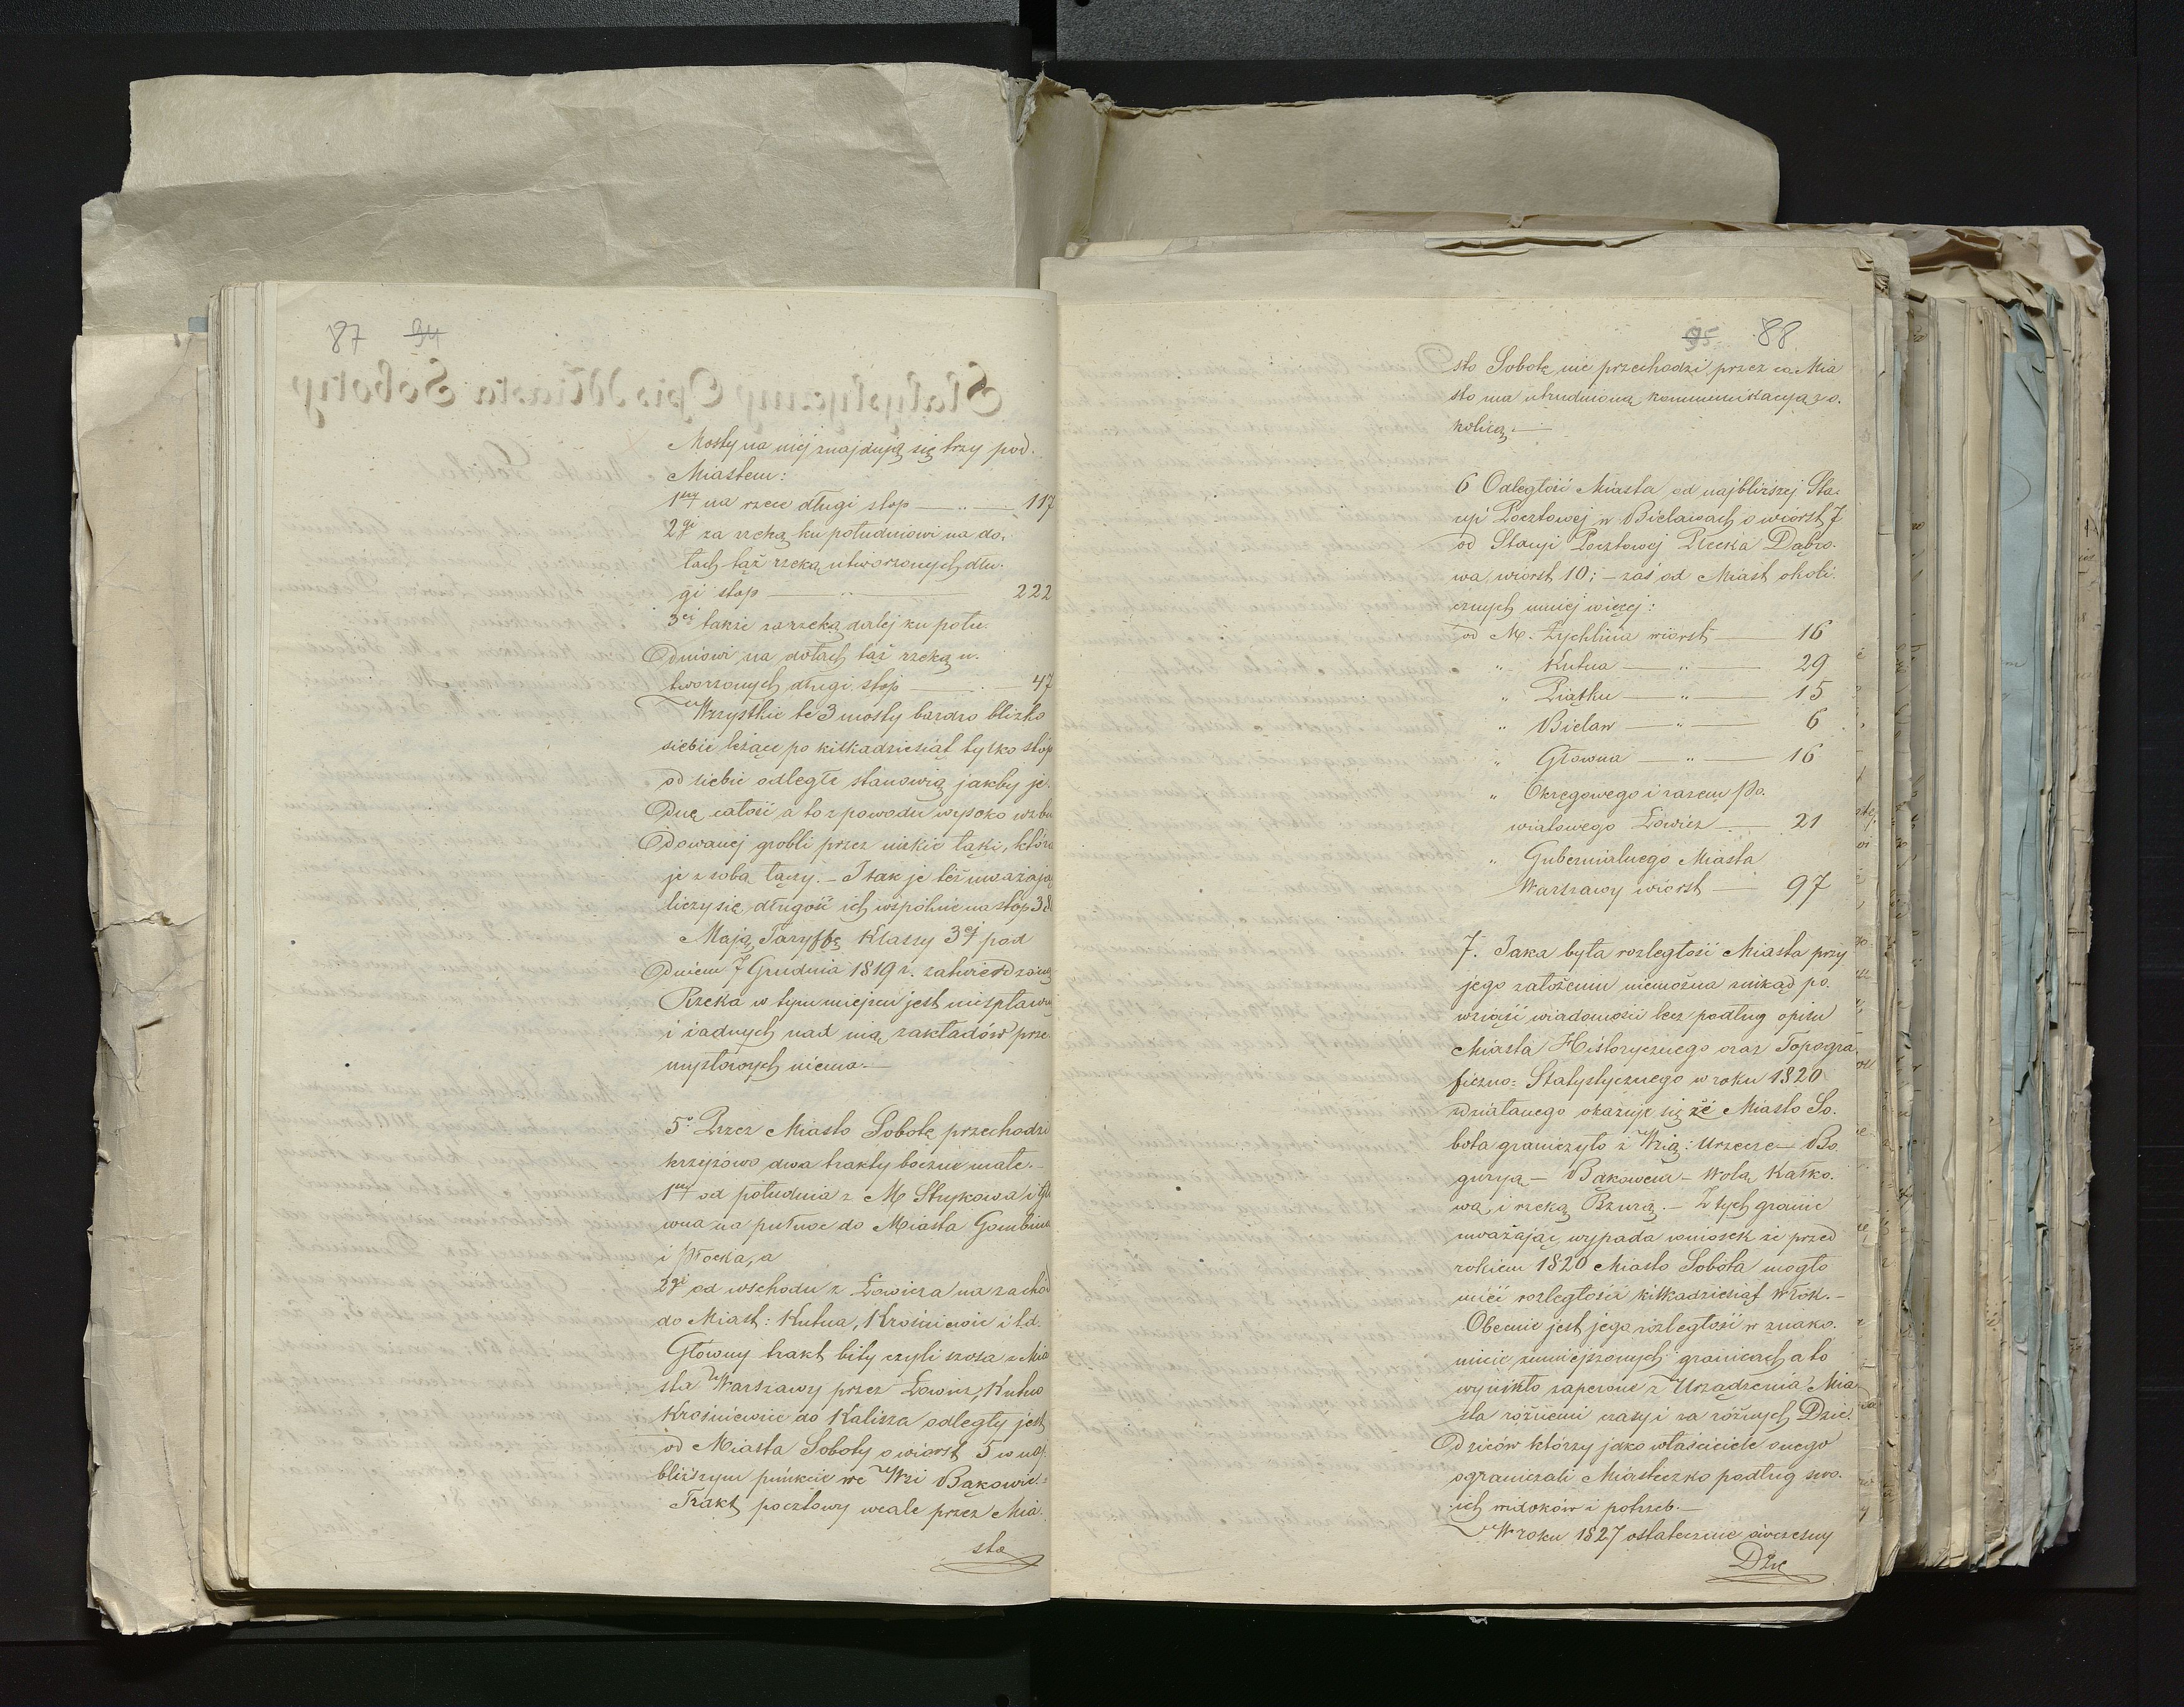 87 94
Mosty na niej znajdują się trzy pod
Miastem:
1szy na rzece długi stop — „ — 117
2gi za rzeką ku południowi na do-
łach tąż rzeką utworzonych dłu-
gi stop — „ — 222
3ci także za rzeką dalej ku połu-
dniowi na dołach tąż rzeką u-
tworzonych długi stop — „ — 47
Wszystkie te 3 mosty bardzo blizko
siebie leżące po kilkadziesiąt tylko stóp
od siebie odległe stanowią jakby je-
dnę całość a to z powodu wysoko wzbu
dowanej grobli przez nizkie łąki, która
je z sobą łączy. – I tak je też uważając
liczy się długość ich wspólnie na stop 38
Mają Taryffę Klassy 3ej pod
dniem 7 Grudnia 1819 r. zatwierdzoną
Rzeka w tym miejscu jest niespławną
i żadnych nad nią zakładów prze
mysłowych niema. —
5o Przez Miasto Sobotę przechodzi
krzyżowo dwa trakty boczne małe. –
1szy od południa z M Strykowa i Gło
wna na północ do Miasta Gombina
i Płocka, a
2gi od wschodu z Łowicza na zachód
do Miast: Kutna, Krośniewic i t.d.
Główny trakt bity czyli szosa z Mia
sta Warszawy przez Łowicz, Kutno
Krośniewice do Kalisza odległy jest
od Miasta Soboty o wiorst 5 w naj-
bliższym punkcie we Wsi Bąkowie. –
Trakt pocztowy wcale przez Mia-
sto
95 88
sto Sobotę nie przechodzi przez co Mia
sto ma utrudnioną kommunikacyą z o-
kolicą. —
6 Odległość Miasta od najbliższej Sta-
cyi Pocztowej w Bielawach o wiorst 7
od Stacyi Pocztowej Plecka Dąbro-
wa wiorst 10; – zaś od Miast okoli-
cznych mniej więcej:
od M. Żychlina wiorst — 16
„ Kutna — „ — 29
„ Piątku — „ — 15
„ Bielaw — „ — 6
„ Głowna — „ — 16
„ Okręgowego i razem Po-
wiatowego Łowicz — 21
„ Gubernialnego Miasta
Warszawy wiorst — 97
7. Jaka była rozległość Miasta przy
jego założeniu niemożna znikąd po-
wziąść wiadomości lecz podług opisu
Miasta Historycznego oraz Topogra-
ficzno= Statystycznego w roku 1820
zdziałanego okazuje się że Miasto So-
bota graniczyło z Wsią: Urzecze – Bo
gurya – Bąkowem – Wolą Kałko-
wą i rzeką Bzurą. – Z tych granic
uważając, wypada wniosek że przed
rokiem 1820 Miasto Sobota mogło
mieć rozległości kilkadziesiąt Włók. –
Obecnie jest jego rozległość w znako-
micie zmniejszonych granicach a to
wynikło zapewne z Urządzenia Mia-
sta różnemi czasy i za różnych Dzie-
dziców którzy jako właściciele onego
ograniczali Miasteczko podług swo-
ich widoków i potrzeb. —
W roku 1827 ostatecznie ówczesny
Dzie